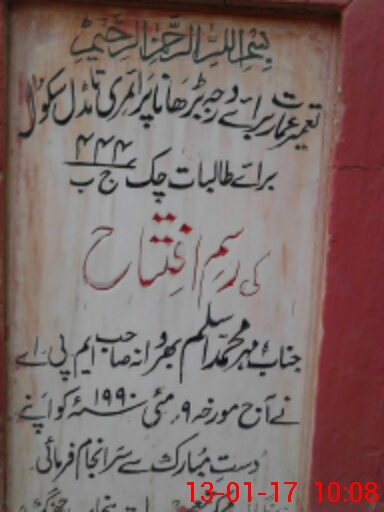 بِسْمِ اللهِ الرَّحْمٰنِ الرَّحِيْمِ
تعمیر عمارت برائے درجہ بڑھانا پرائمری تا مڈل سکول
برائے طالبات چک ۴۴۴ ج ب
کی رسمِ افتتاح
جناب مہر محمد اسلم بھروانہ صاحب ایم پی اے
نے آج مورخہ ۹ مئی ۱۹۹۰ء کو اپنے
دستِ مبارک سے سرانجام فرمائی
13-01-17 10:08